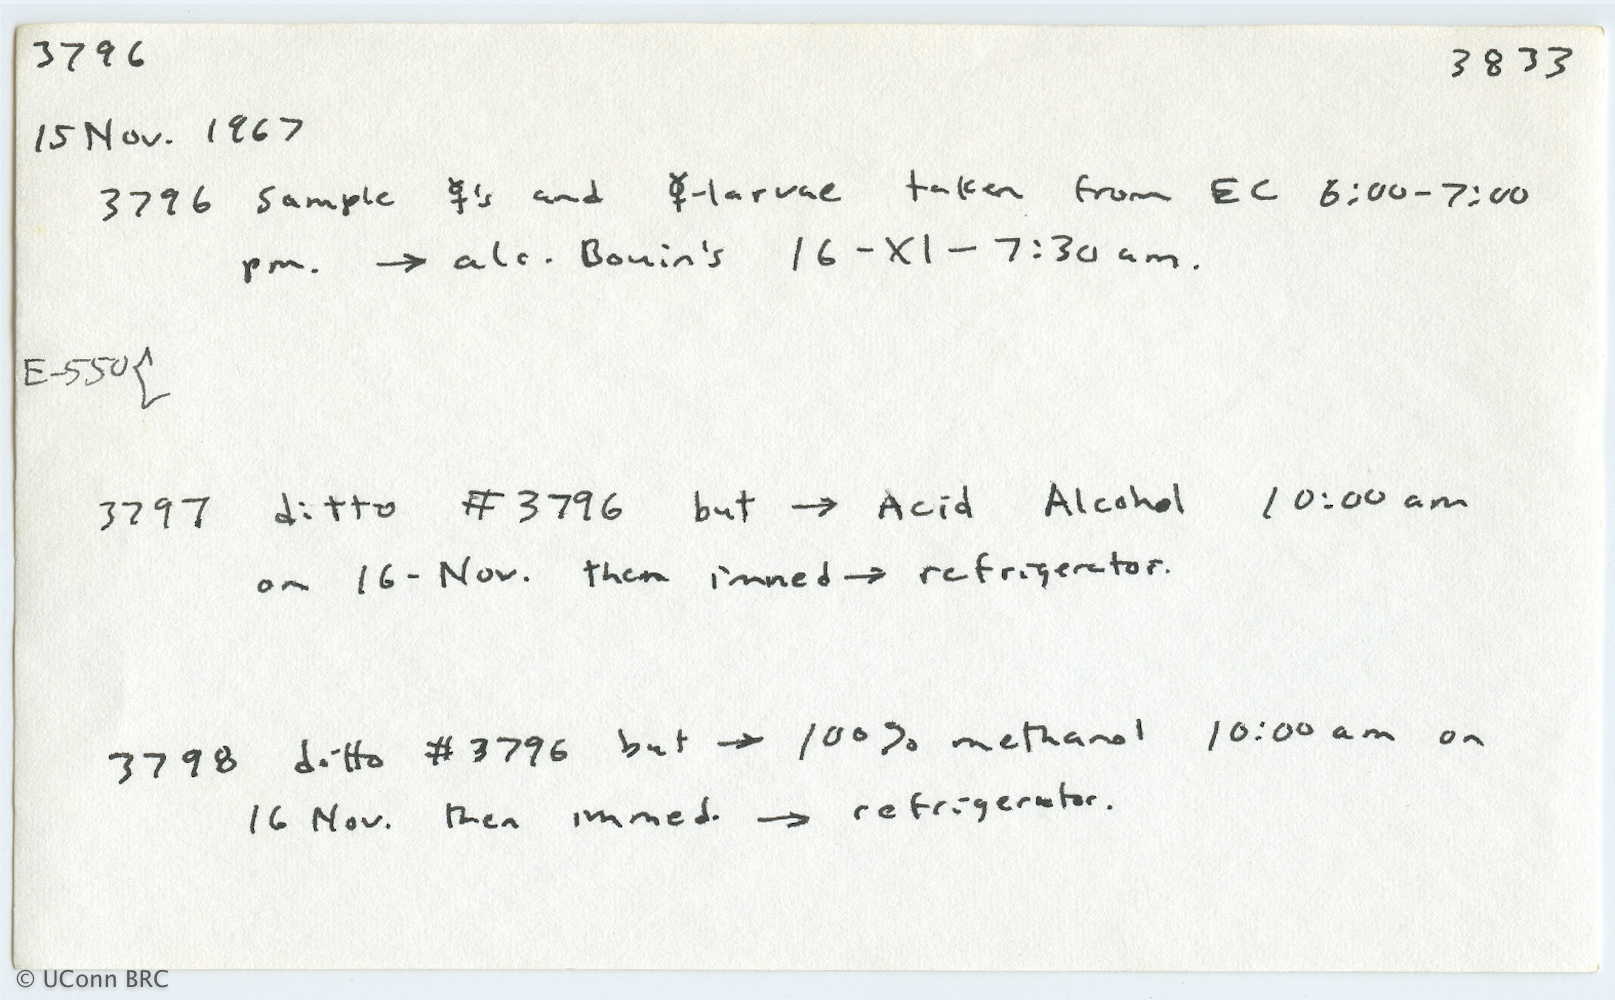 3796 3833
15 Nov. 1967
3796 Sample ☿'s and ☿-larvae taken from EC 6:00-7:00
pm. → alc. Bouin's 16-XI-7:30 am.
E-550{
3797 ditto #3796 but → Acid Alcohol 10:00 am
on 16-Nov. then immed → refrigerator.
3798 ditto #3796 but → 100% methanol 10:00 am on
16 Nov. then immed. → refrigerator.
© UConn BRC